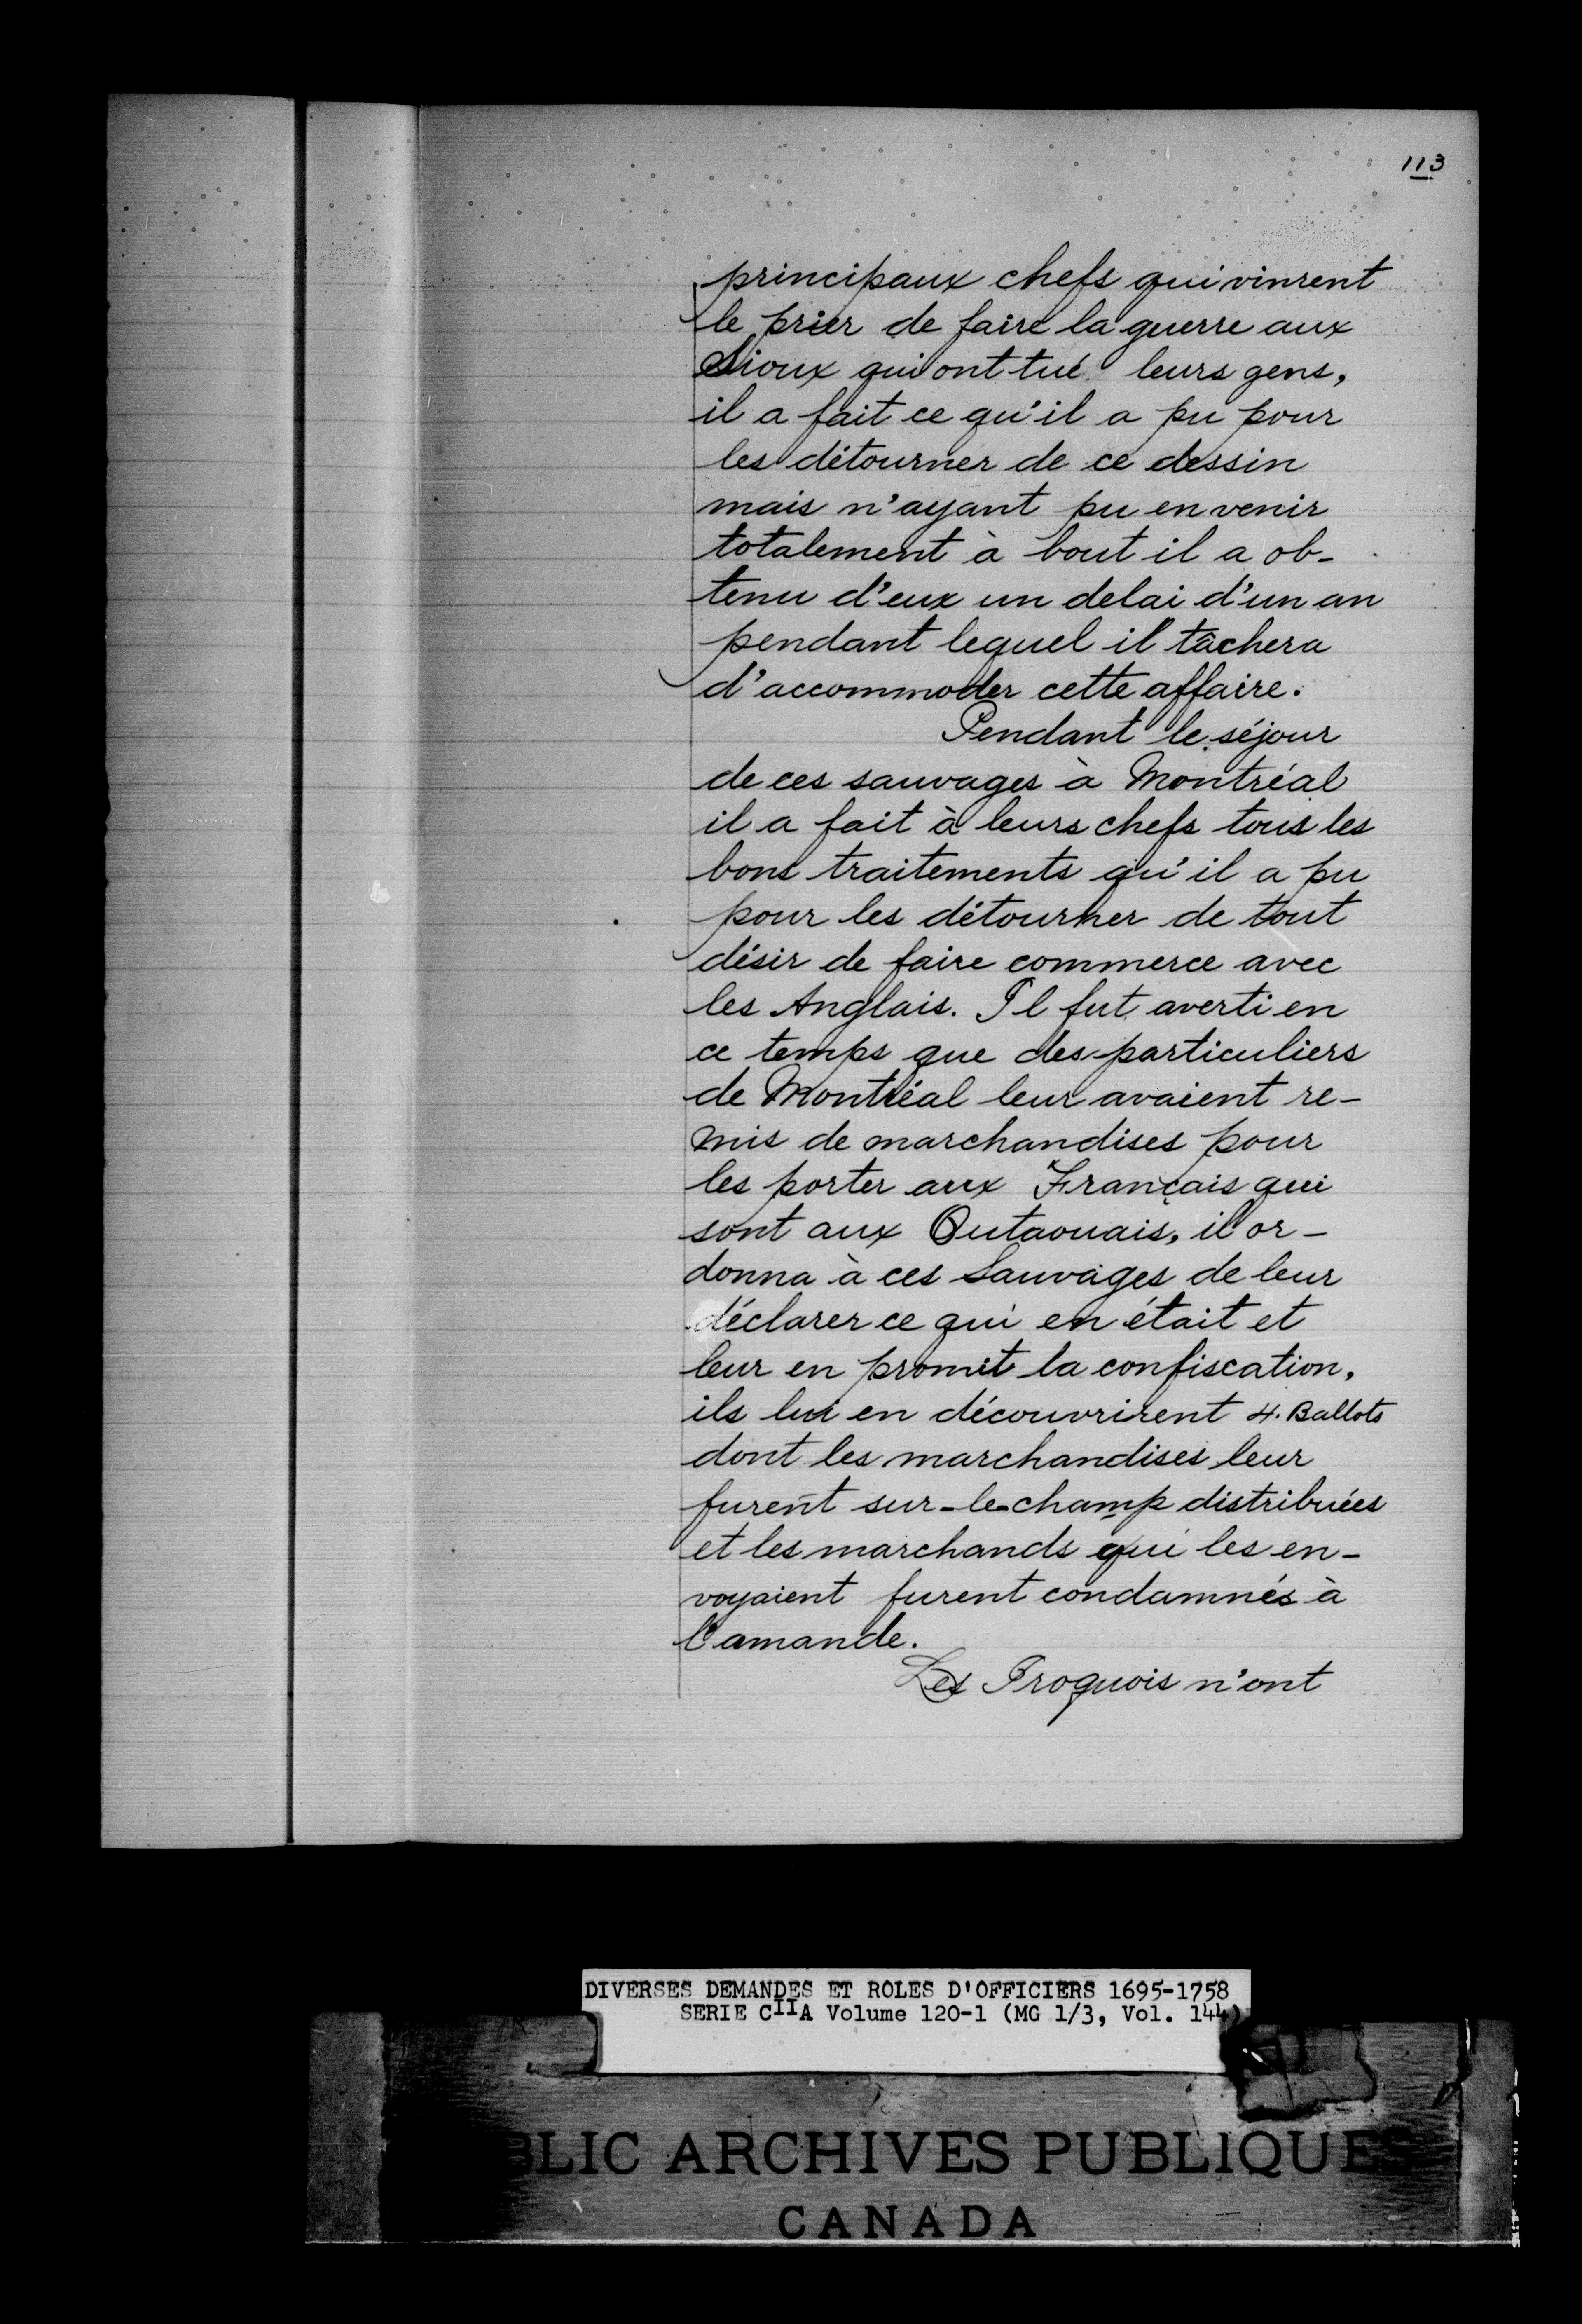 113
principaux chefs qui vinrent
le prier de faire la guerre aux
Sioux qui ont tué leurs gens,
il a fait ce qu'il a pu pour
les détourner de ce dessin
mais n'ayant pu en venir
totalement à bout il a ob-
tenu d'eux un delai d'un an
pendant lequel il tâchera
d'accommoder cette affaire.
Pendant le séjour
de ces sauvages à Montréal
il a fait à leurs chefs tous les
bons traitements qu'il a pu
pour les détourner de tout
désir de faire commerce avec
les Anglais. Il fut averti en
ce temps que des particuliers
de Montréal leur avaient re-
mis de marchandises pour
les porter aux Français qui
sont aux Outaouais, il or-
donna à ces Sauvages de leur
déclarer ce qui en était et
leur en promit la confiscation,
ils lui en découvrirent 4. Ballots
dont les marchandises leur
furent sur-le-champ distribuées
et les marchands qui les en-
voyaient furent condamnés à
l'amande.
Les Iroquois n'ont
DIVERSES DEMANDES ET ROLES D'OFFICIERS 1695-1758
SERIE CIIA Volume 120-1 (MG 1/3, Vol. 144)
BLIC ARCHIVES PUBLIQUES
CANADA